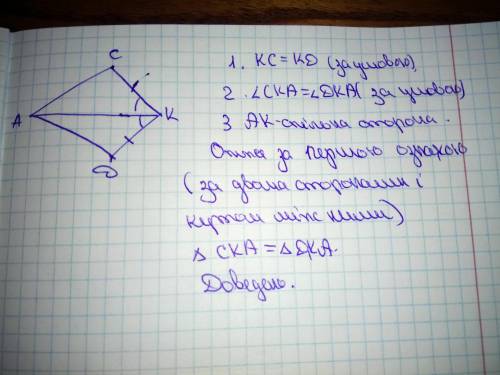 C
A
K
D
1. KC = KD (за умовою)
2. ∠CKA = ∠DKA (за умовою)
3 AK - спільна сторона.
Отже за першою ознакою
(за двома сторонами і
кутом між ними)
△ CKA = △ DKA.
Доведено.